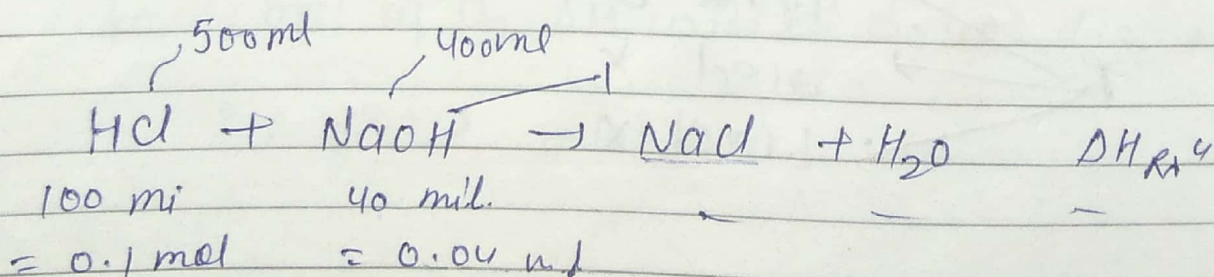 500ml 400ml
HCl + NaOH → NaCl + H₂O ΔH
100 mi 40 mil. - - -
= 0.1 mol = 0.04